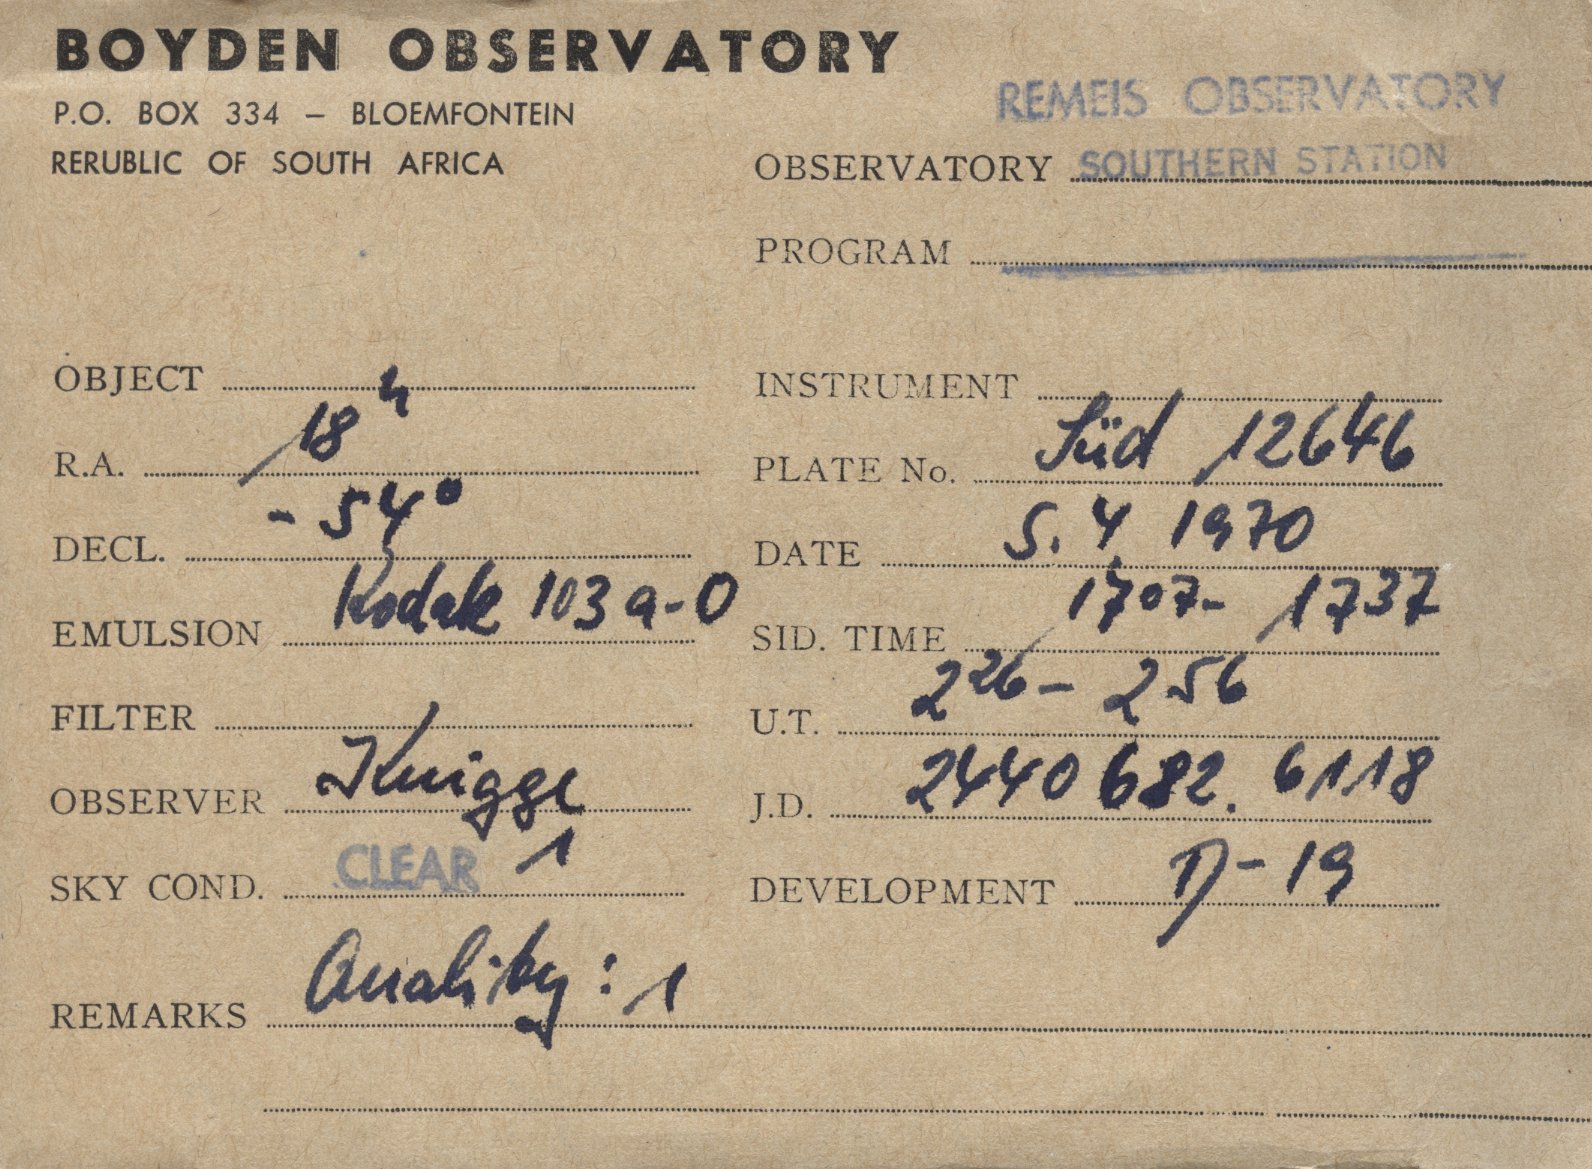 BOYDEN OBSERVATORY
P.O. BOX 334 – BLOEMFONTEIN
RERUBLIC OF SOUTH AFRICA
REMEIS OBSERVATORY
OBSERVATORY SOUTHERN STATION
PROGRAM
OBJECT
R.A. 18h
DECL. - 54°
EMULSION Kodak 103 a-O
FILTER
OBSERVER Knigge
SKY COND. CLEAR 1
REMARKS Quality: 1
INSTRUMENT
PLATE No. Süd 12646
DATE 5. 4. 1970
SID. TIME 1707- 1737
U.T. 2 26 - 2 56
J.D. 2440 682. 6118
DEVELOPMENT D-19